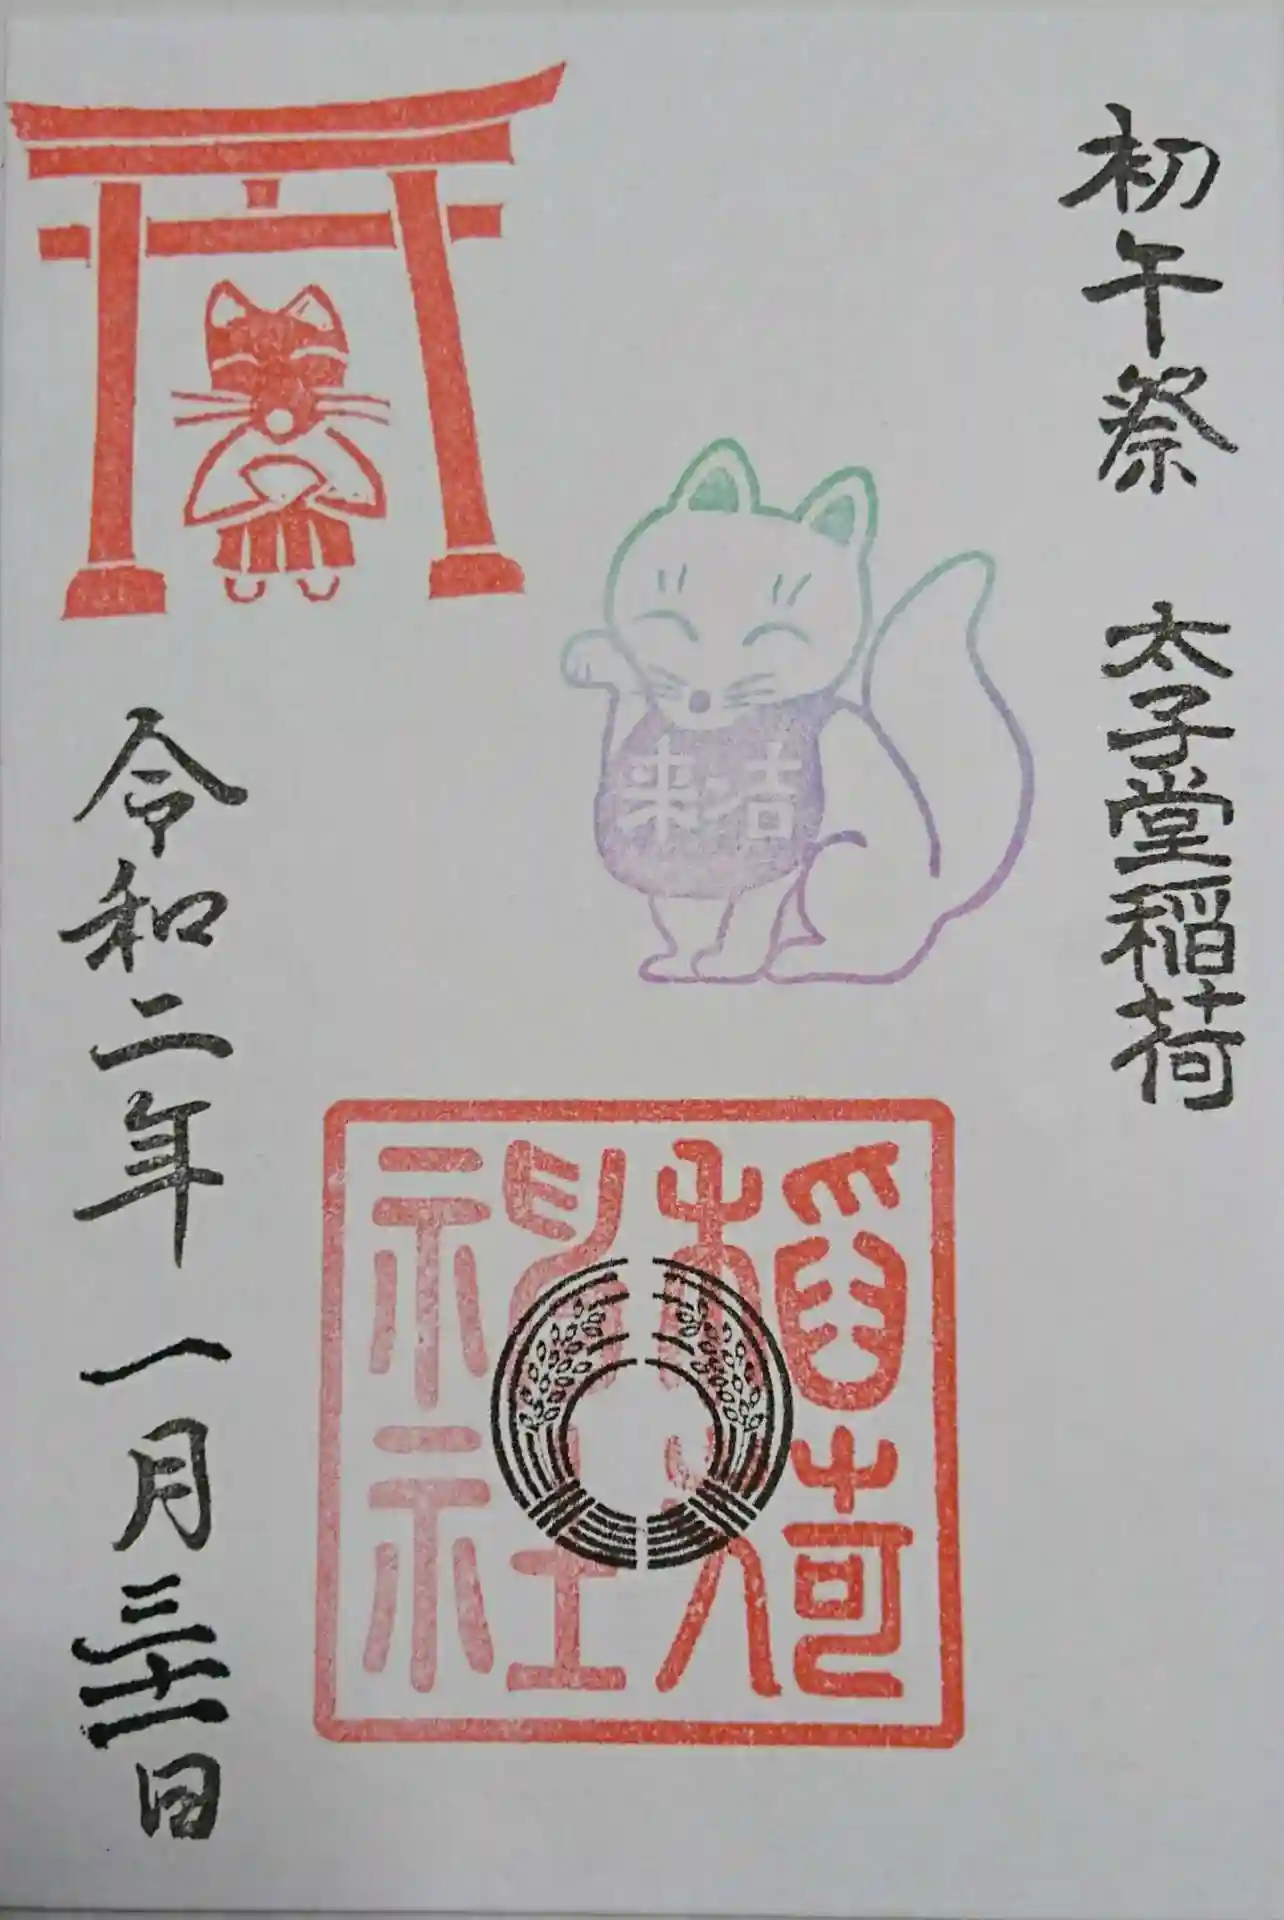 初午祭 太子堂稲荷
来結
稲荷
神社
令和二年一月三十一日